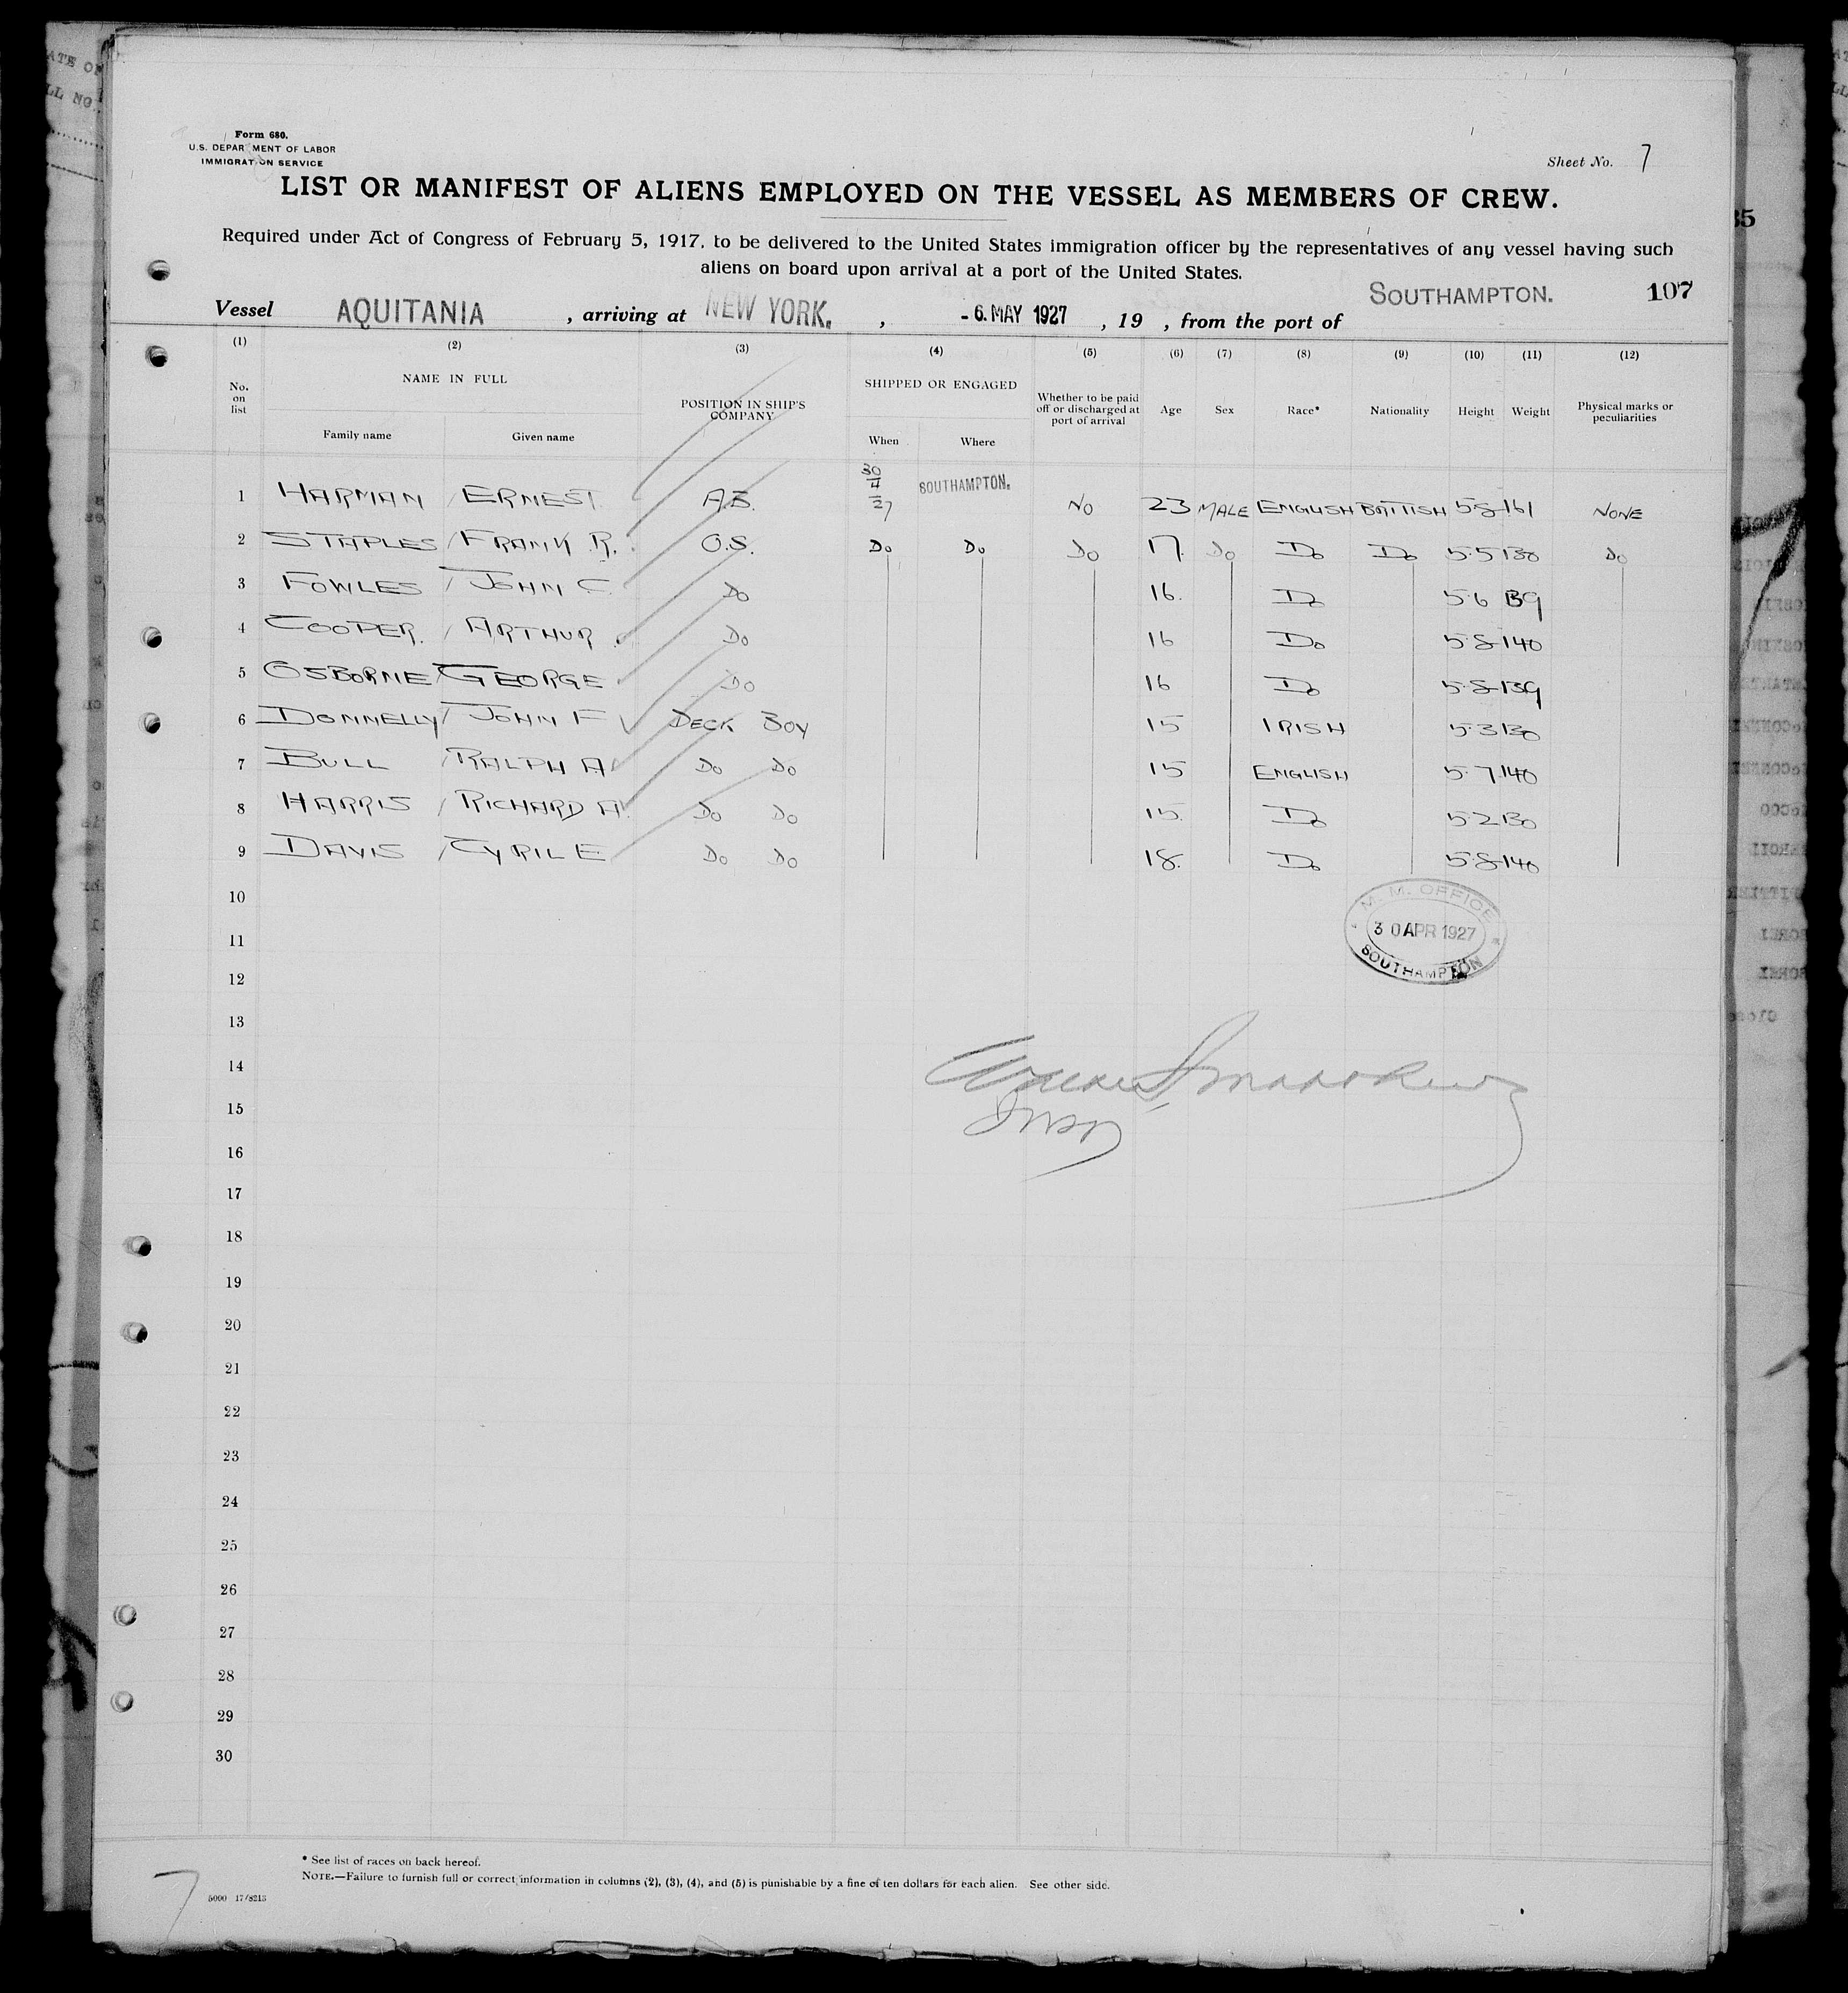 Form 680.
U.S. DEPAR MENT OF LABOR
IMMIGRATION SERVICE
Sheet No. 7
LIST OR MANIFEST OF ALIENS EMPLOYED ON THE VESSEL AS MEMBERS OF CREW.
Required under Act of Congress of February 5, 1917, to be delivered to the United States immigration officer by the representatives of any vessel having such
aliens on board upon arrival at a port of the United States.
Vessel AQUITANIA , arriving at NEW YORK. , - 6. MAY 1927 , 19 , from the port of SOUTHAMPTON. 107
(1) (2) (3) (4) (5) (6) (7) (8) (9) (10) (11) (12)
No. on list NAME IN FULL Family name Given name POSITION IN SHIP'S COMPANY SHIPPED OR ENGAGED When Where Whether to be paid off or discharged at port of arrival Age Sex Race* Nationality Height Weight Physical marks or peculiarities
1 HARMAN / ERNEST A.B. 30/4/27 SOUTHAMPTON. NO 23 MALE ENGLISH BRITISH 5·8 161 NONE
2 STAPLES / FRANK R. O.S. Do Do Do 17. Do Do Do 5·5 130 Do
3 FOWLES / JOHN C. Do 16. Do 5·6 139
4 COOPER. / ARTHUR Do 16 Do 5·8 140
5 OSBORNE / GEORGE Do 16 Do 5·8 139
6 DONNELLY / JOHN F DECK BOY 15 IRISH 5·3 130
7 BULL / RALPH A Do Do 15 ENGLISH 5·7 140
8 HARRIS / RICHARD A. Do Do 15. Do 5·2 130
9 DAVIS / CYRIL E Do Do 18. Do 5·8 140
10
11
12
M. M. OFFICE
30 APR 1927
SOUTHAMPTON
13
14
15
16
17
18
19
20
21
22
23
24
25
26
27
28
29
30
* See list of races on back hereof.
NOTE.—Failure to furnish full or correct information in columns (2), (3), (4), and (5) is punishable by a fine of ten dollars for each alien. See other side.
7
5000 17/8213